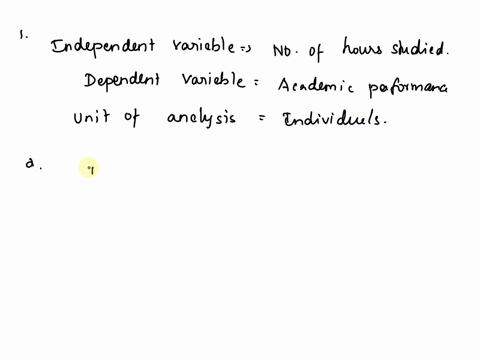 1. Independent variable => No. of hours studied.
Dependent variable = Academic performanc
Unit of analysis = Individuels.
2.